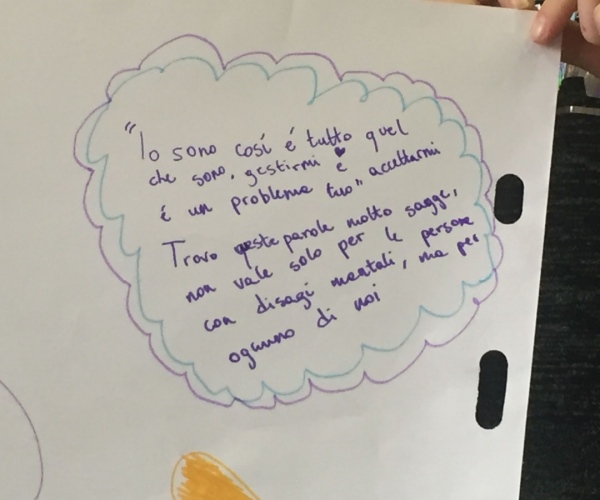 "Io sono così é tutto quel
che sono, gestirmi e accettarmi
é un problema tuo"
Trovo queste parole molto sagge,
non vale solo per le persone
con disagi mentali, ma per
ogunno di noi